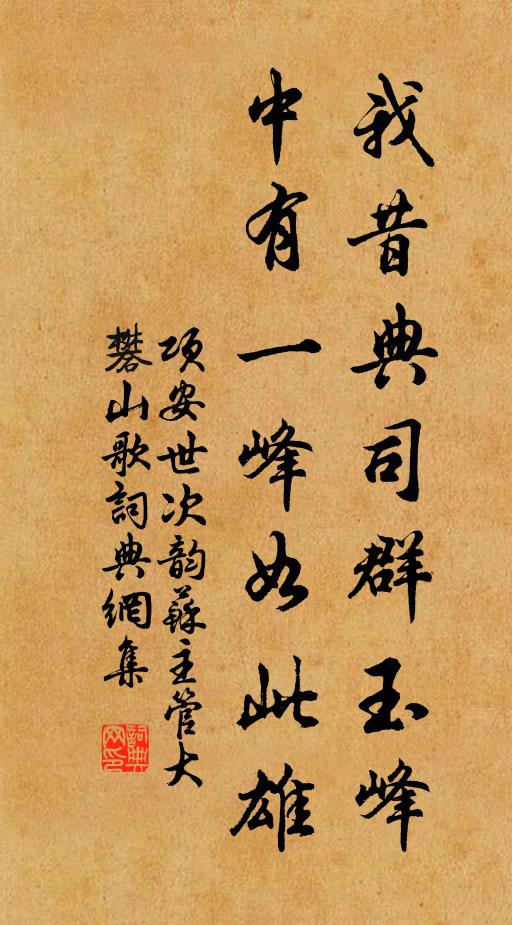 我昔典司群玉峰
中有一峰如此雄
项安世次韵苏主管大
礬山歌詞典網集
詞典
网印